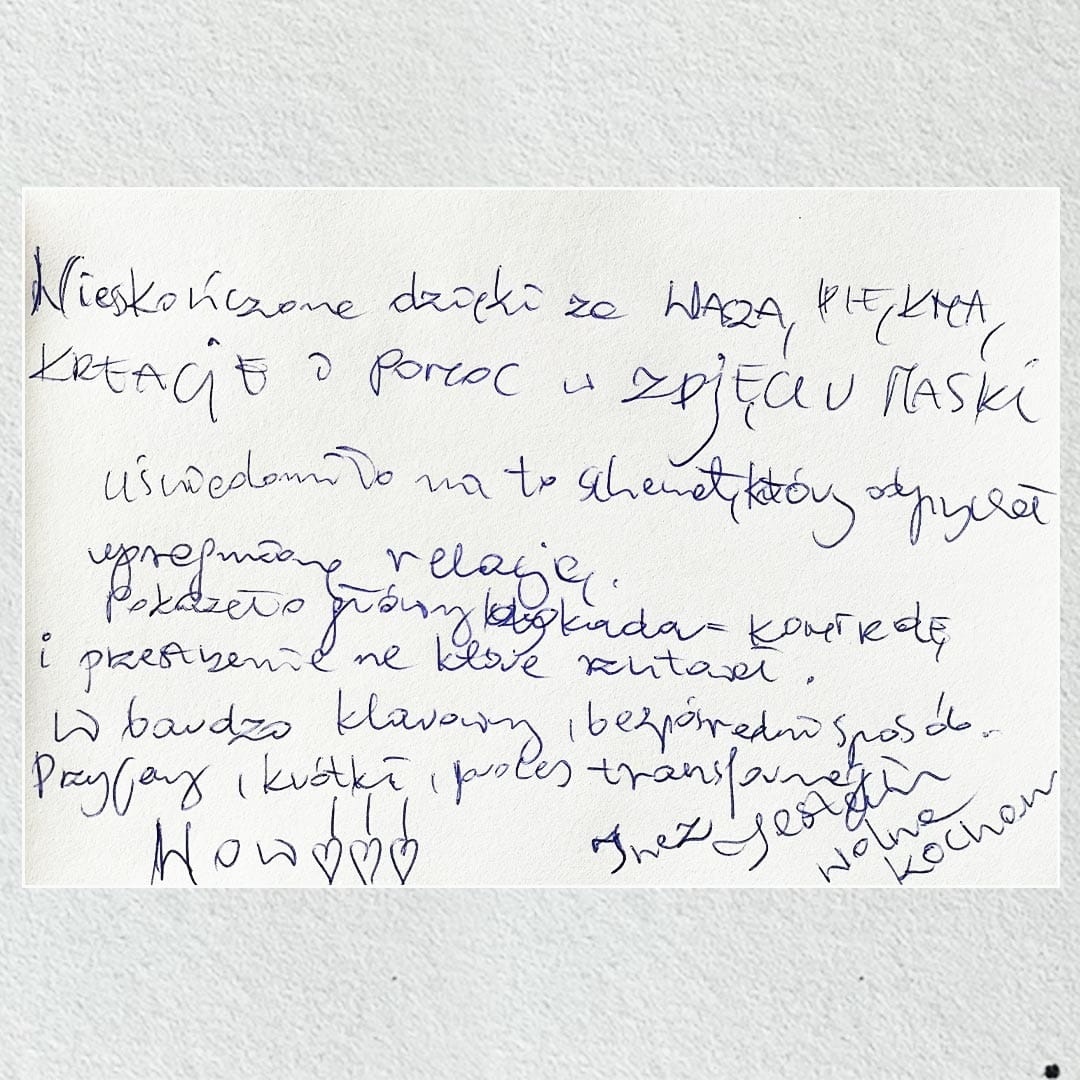 Nieskończone dzięki za WASZĄ PIĘKNĄ
KREACJĘ I POMOC w ZDJĘCIU MASKI
uświadomiło na to schemat, który odpychał
relację.
Pokazało główny = kontrolę
i przestrzenie na które rzutował.
W bardzo klarowny i bezpośredni sposób.
Przyjazny i krótki proces transformacji
Wow ♡♡♡
Inez Jestem
wolna
kocham